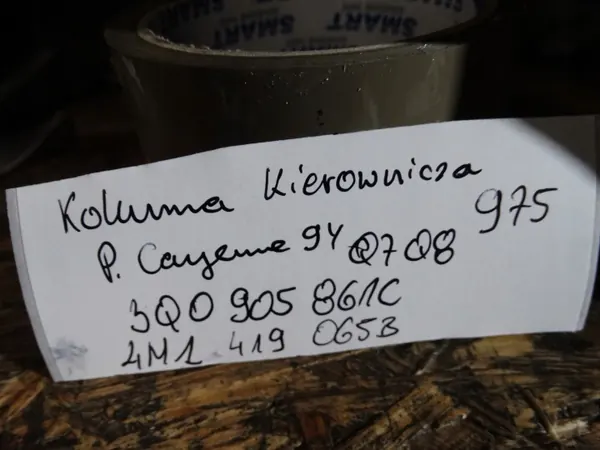 SMART SMART SMART
Kolumna Kierownicza
P. Cayenne 9Y Q7 Q8 975
3Q0 905 861C
4M1 419 065B